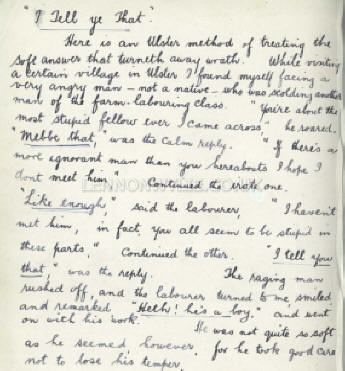 "I Tell ye That".
Here is an Ulster method of treating the
soft answer that turneth away wrath. While visiting
a certain village in Ulster I found myself facing a
very angry man - not a native - who was scolding another
man of the farm-labouring class. "You're about the
most stupid fellow ever I came across," he roared.
"Mebbe that," was the calm reply. "If there's a
more ignorant man than you hereabouts I hope I
dont meet him," Continued the irate one.
"Like enough," said the labourer, "I haven't
met him, in fact, you all seem to be stupid in
these parts," Continued the other. "I tell you
that," was the reply. The raging man
rushed off, and the labourer turned to me, smiled
and remarked "Heth! he's a boy," and went
on with his work. He was not quite so soft
as he seemed however, for he took good care
not to lose his temper.